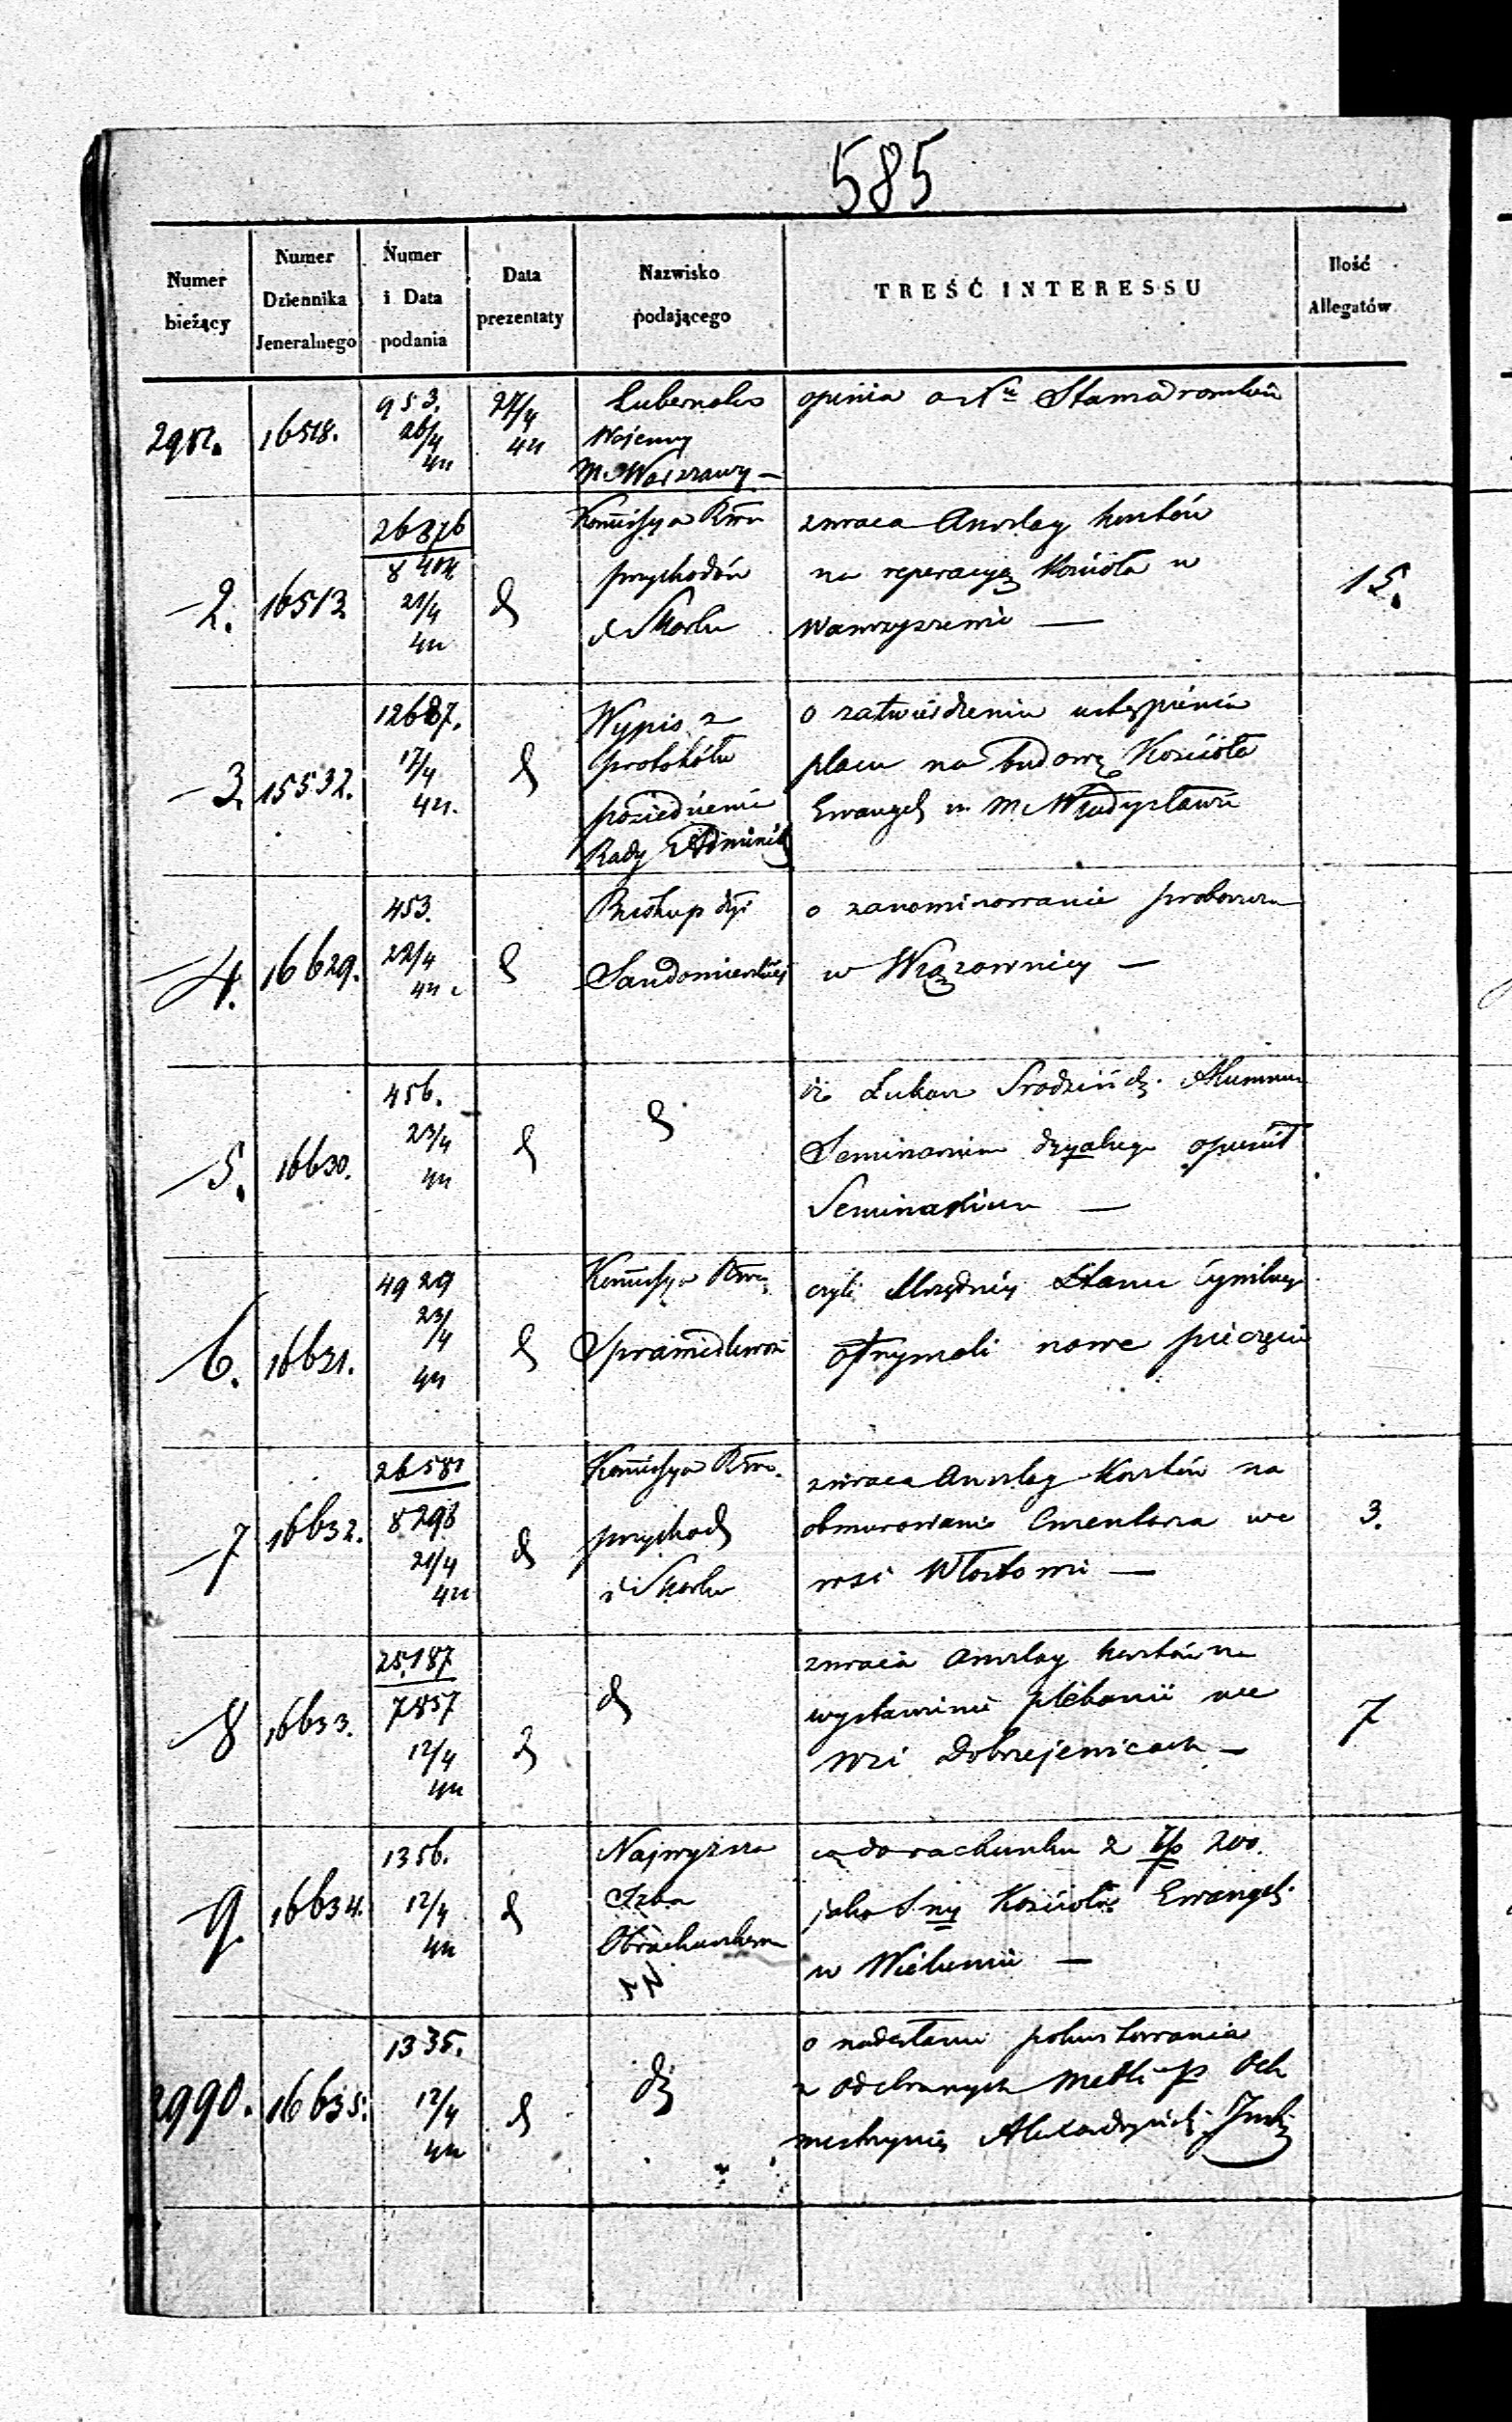 585
Numer bieżący
Numer Dziennika Jeneralnego
Numer i Data podania
Data prezentaty
Nazwisko podającego
TREŚĆ INTERESSU
Ilość Allegatów
2981. 16518. 953. 26/4 27/4
Wojenny
M. Warszawy —
opinia o
2. 16513 26876 21/4
Kommissya Rzwa
przychodów
i Skarbu
zwraca Anszlag kosztów
na reperacyą Kościoła w
Wawrzyszewie —
15.
3. 15532. 12687. 17/4
Wypis z
protokółu
posiedzenia
Rady Administ
o zatwierdzenie ustąpienia
placu na budowę Kościoła
Ewangel w M. Władysławie
4. 16629. 453. 22/4
Biskup dyi
Sandomierskiej
o zanominowanie proboszcza
w Wiązownicy —
5. 16630. 456. 23/4
iż Łukasz Alumnus
Seminarium dyalnego opuścił
Seminarium —
6. 16631. 4929 23/4
Kommissya Rzwa
Sprawiedliwoś
czyli Urzędnicy Stanu Cywilnego
otrzymali nowe pieczęcie
7 16632. 26581 8298 21/4
Kommissya Rzwa
przychod
i Skarbu
zwraca Anszlag Kosztów na
obmurowanie Cmentarza we
wsi Włostowie —
3.
8 16633. 25187 7857 12/4
zwraca Anszlag kosztów na
wystawienie plebanii we
wsi Dobrzejewicach —
7
9. 16634. 1356. 12/4
Najwyższa
Izba
Obrachunkowa
z 200.
jako Kościoła Ewangel
w Wieluniu —
2990. 16635. 1335. 12/4
o nadesłanie pokwitowania
z odebranych